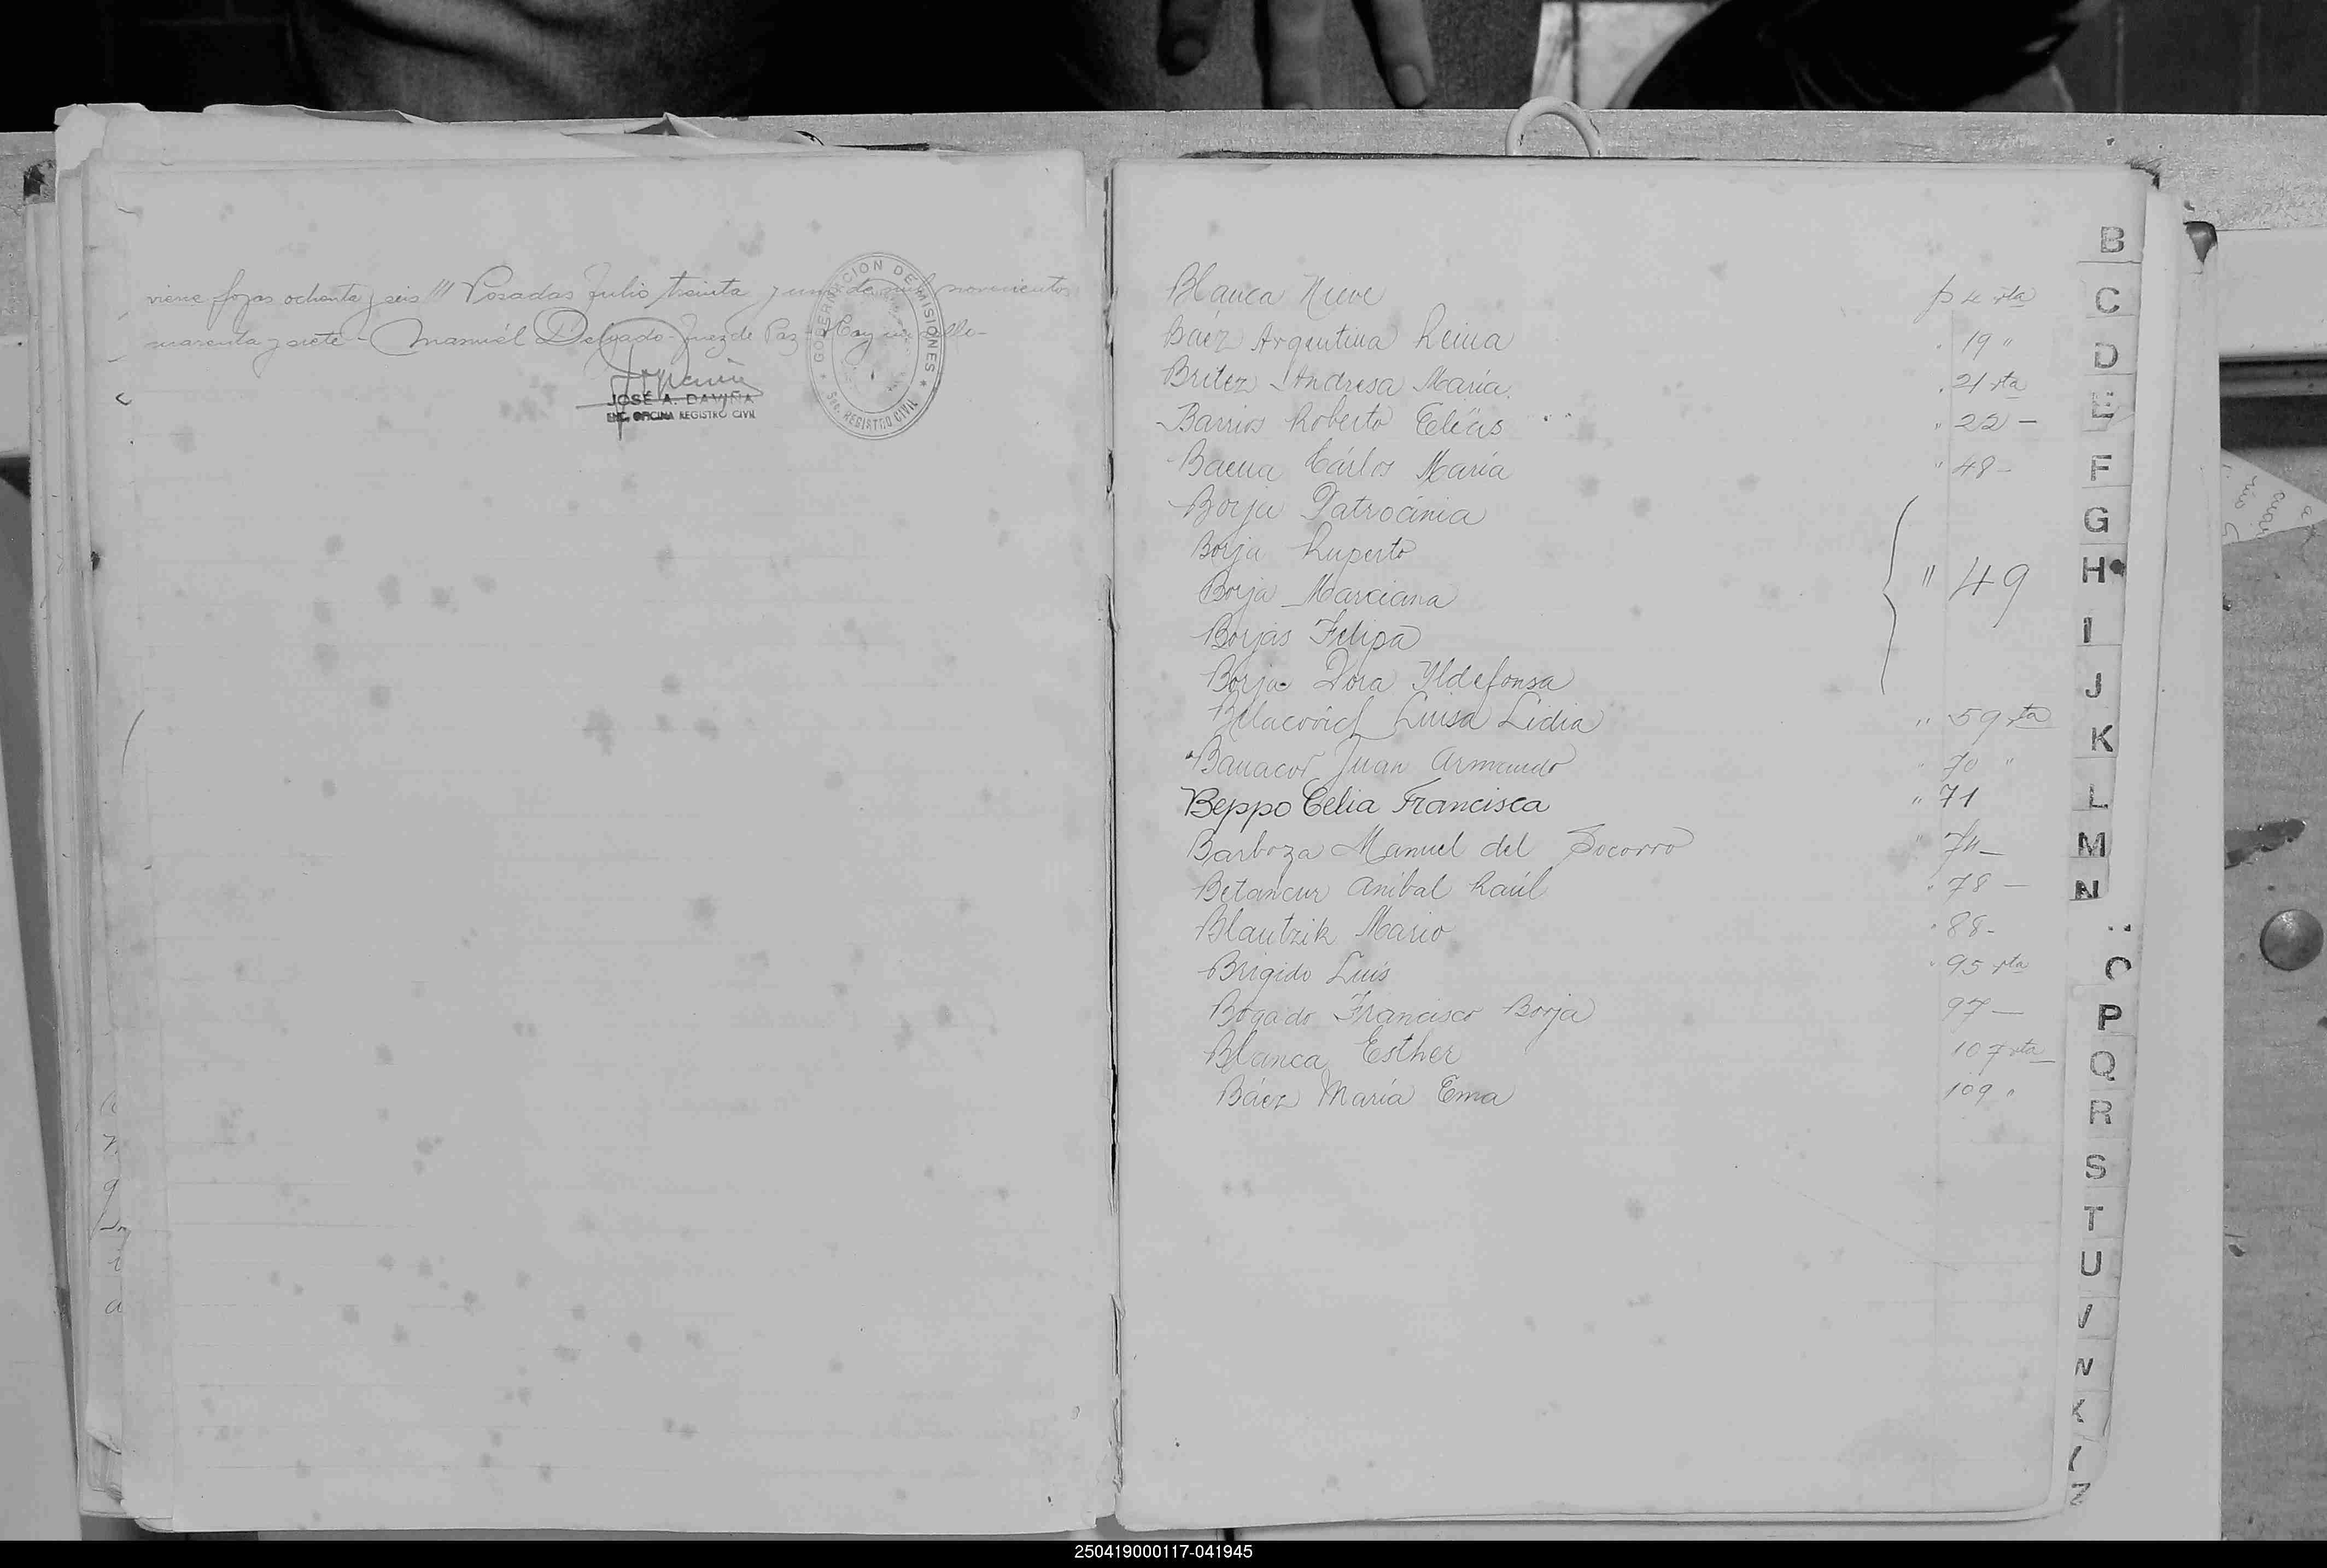 viene fojas ochenta y seis /// Posadas Julio treinta y uno de mil novecientos
cuarenta y siete - Manuél Delgado - Juez de Paz - Hay un sello -
JOSÉ A. DAVIÑA
ENC. OFICINA REGISTRO CIVIL
GOBERNACION DE MISIONES
SEC. REGISTRO CIVIL
Blanca Nieve p 4 vta
Báez Argentina Reina " 19 "
Britez Andresa María " 21 vta
Barrios Roberto Elías " 22 -
Baena Cárlos María " 48 -
Borja Patrocinia
Borja Ruperto
Borja Marciana " 49
Borjas Felipa
Borja Dora Yldefonsa
Luisa Lidia " 59 vta
Juan Armando " 70 "
Beppo Celia Francisca " 71
Barboza Manuel del Socorro " 74 -
Betancur Anibal Raúl " 78 -
Blautzik Mario " 88 -
Brígido Luis " 95 vta
Bogado Francisco Borja 97 -
Blanca Esther 107 vta
Báez María Ema 109 "
B
C
D
E
F
G
H
I
J
K
L
M
N
O
P
Q
R
S
T
U
Z
250419000117-041945